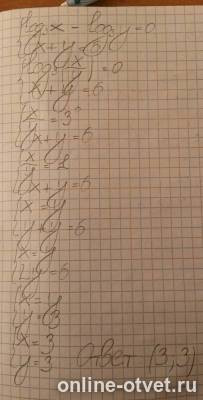 {log₃x - log₃y = 0
{x + y = 6
{log₃(x/y) = 0
{x + y = 6
{x/y = 3⁰
{x + y = 6
{x/y = 1
{x + y = 6
{x = y
{y + y = 6
{x = y
{2y = 6
{x = y
{y = 3
{x = 3
{y = 3 Ответ (3,3)
online-otvet.ru